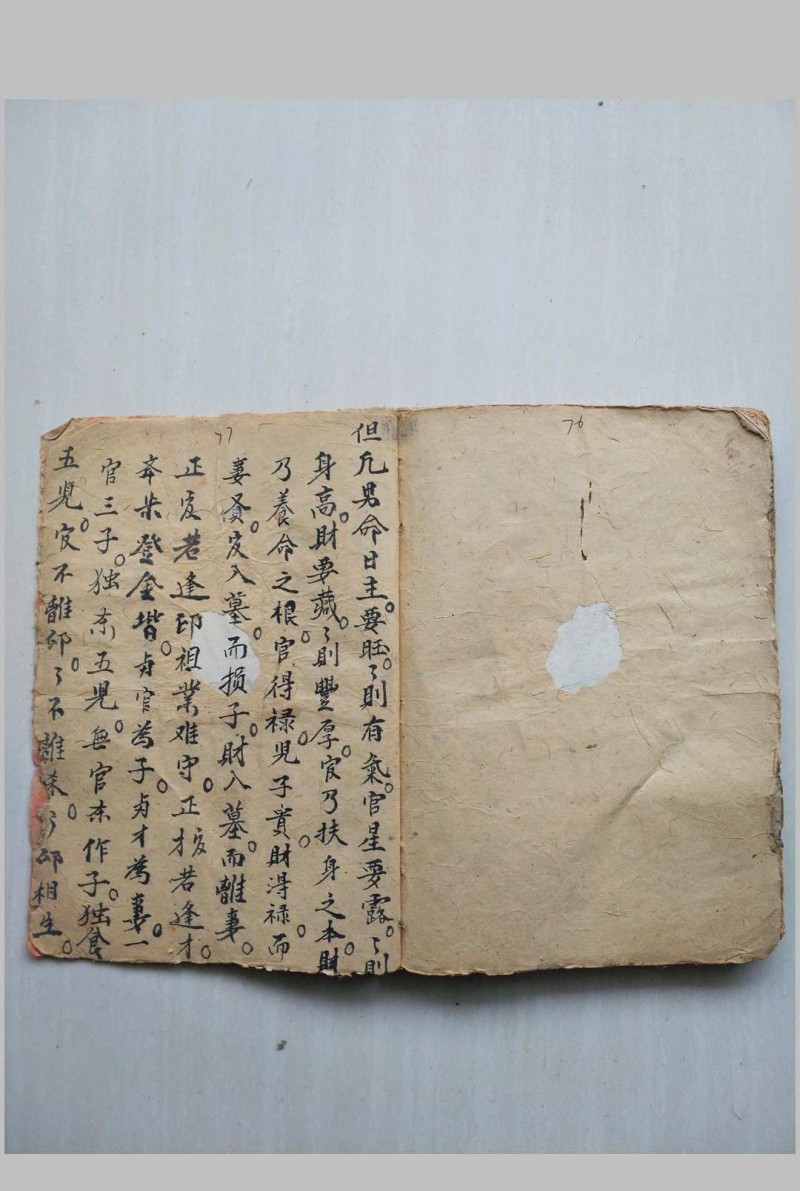 76
77
但凡男命日主。要旺。々則有氣。官星要露。々則
身高。財要藏。々則豐厚。官乃扶身之本。財
乃養命之根。官得禄。兒子貴。財得禄。而
妻賢。官入墓。而损子。財入墓。而離妻。
正官若逢印祖業难守。正才官若逢才。
登金堦。为官為子。为才為妻。一
官三子。独杀五兒。無官杀作子。独食
五兒。官不離印。々不離杀。々印相生。